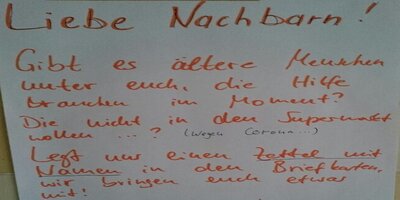 Liebe Nachbarn!
Gibt es ältere Menschen
unter euch, die Hilfe
brauchen im Moment?
Die nicht in den Supermarkt
wollen ...? (wegen Corona...)
Legt nur einen Zettel mit
Namen in den Briefkasten,
wir bringen euch etwas
mit!